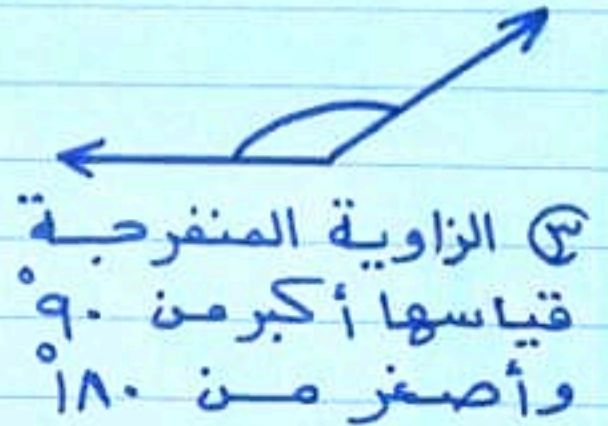 ٣ الزاوية المنفرجة
قياسها أكبر من ٩٠°
وأصغر من ١٨٠°